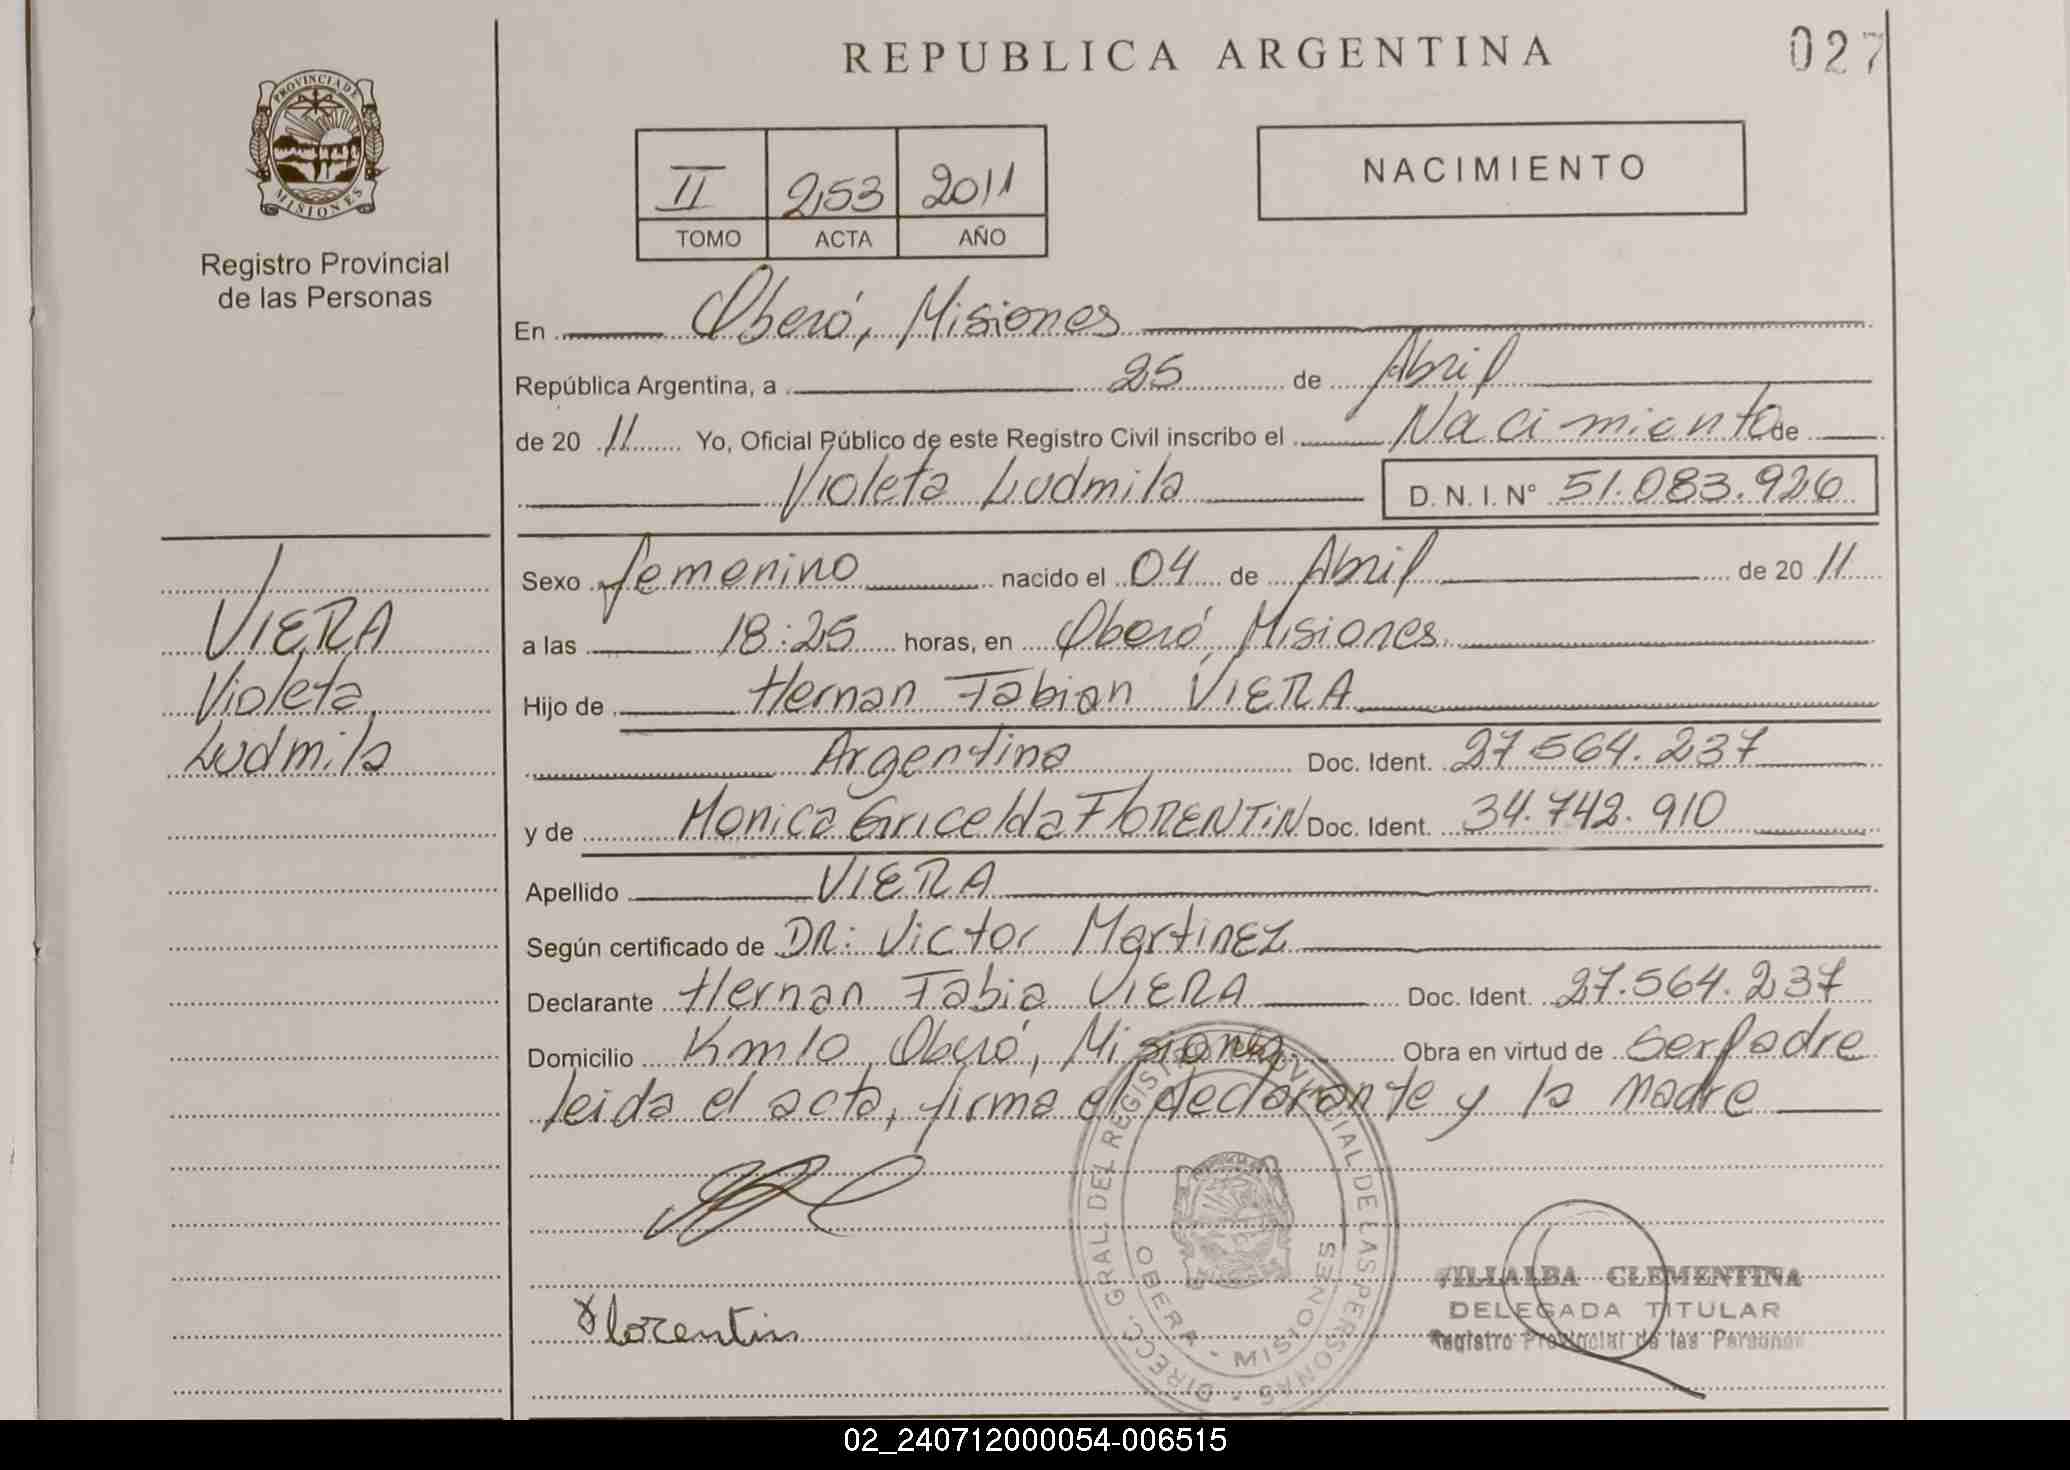 REPUBLICA ARGENTINA
027
PROVINCIA DE
MISIONES
Registro Provincial
de las Personas
II 253 2011
TOMO ACTA AÑO
NACIMIENTO
En Oberá, Misiones
República Argentina, a 25 de Abril
de 20 11 Yo, Oficial Público de este Registro Civil inscribo el Nacimiento de
Violeta Ludmila D. N. I. N° 51.083.926
VIERA
Violeta
Ludmila
Sexo femenino nacido el 04 de Abril de 20 11
a las 18:25 horas, en Oberá, Misiones
Hijo de Hernan Fabian VIERA
Argentina Doc. Ident. 27.564.237
y de Monica Gricelda FlORENTiN Doc. Ident. 34.742.910
Apellido VIERA
Según certificado de DR: Victor MartinEZ
Declarante Hernan Fabia VIERA Doc. Ident. 27.564.237
Domicilio Km10 Oberá, Misiones Obra en virtud de ser padre
leida el acta, firma el declarante y la madre
Florentin
DIRECC. GRAL. DEL REGISTRO PROVINCIAL DE LAS PERSONAS
OBERA - MISIONES
VILLALBA CLEMENTINA
DELEGADA TITULAR
Registro Provincial de las Personas
02_240712000054-006515